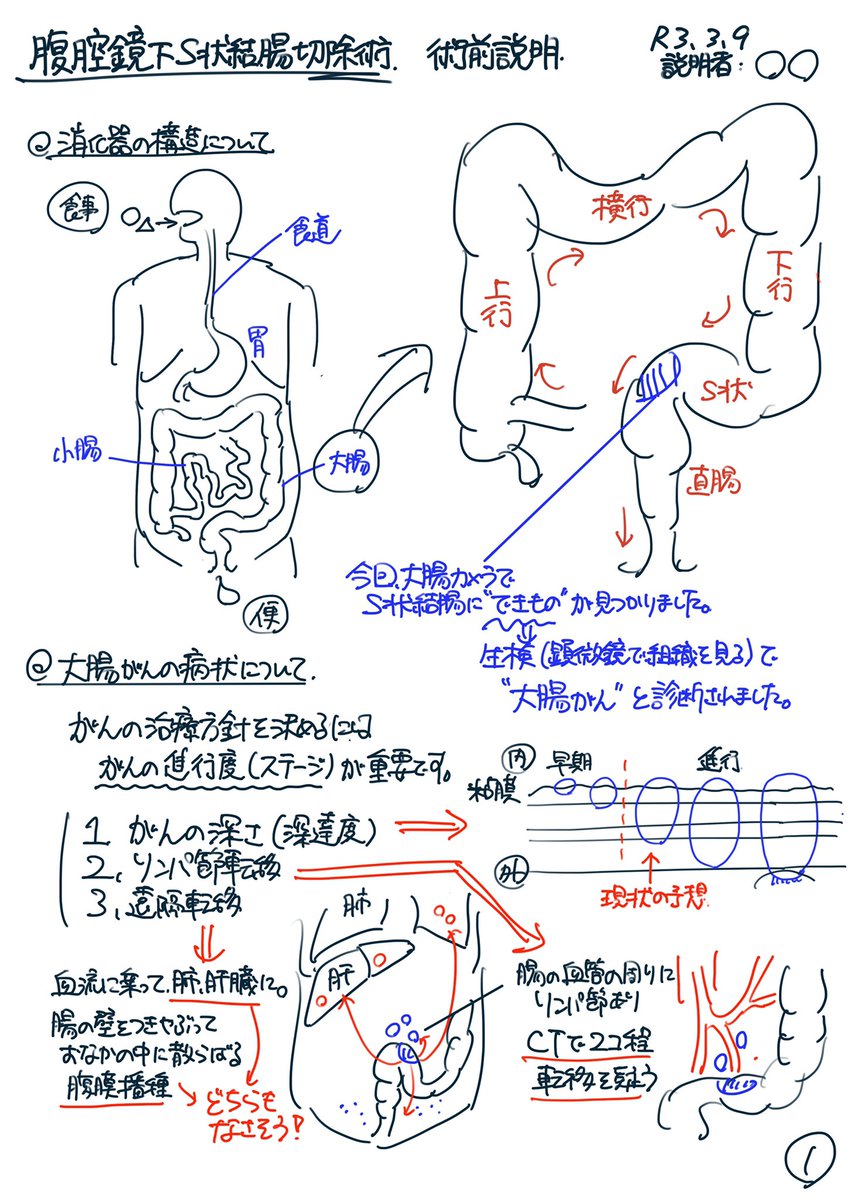 腹腔鏡下S状結腸切除術. 術前説明.
R3.3.9
説明者:○○
◎消化器の構造について
食事
食道
胃
小腸
大腸
便
上行
横行
下行
S状
直腸
今回、大腸カメラで
S状結腸に"できもの"が見つかりました。
生検(顕微鏡で組織を見る)で
"大腸がん"と診断されました。
◎大腸がんの病状について.
がんの治療方針を決めるには
がんの進行度(ステージ)が重要です。
1. がんの深さ(深達度)
2. リンパ節転移
3. 遠隔転移
内
早期
進行
粘膜
外
現状の予想
血流に乗って、肺、肝臓に。
腸の壁をつきやぶって
おなかの中に散らばる
腹膜播種
どちらも
なさそう!
肺
肝
腸の血管の周りに
リンパ節あり
CTで2コ程
転移を疑う
1